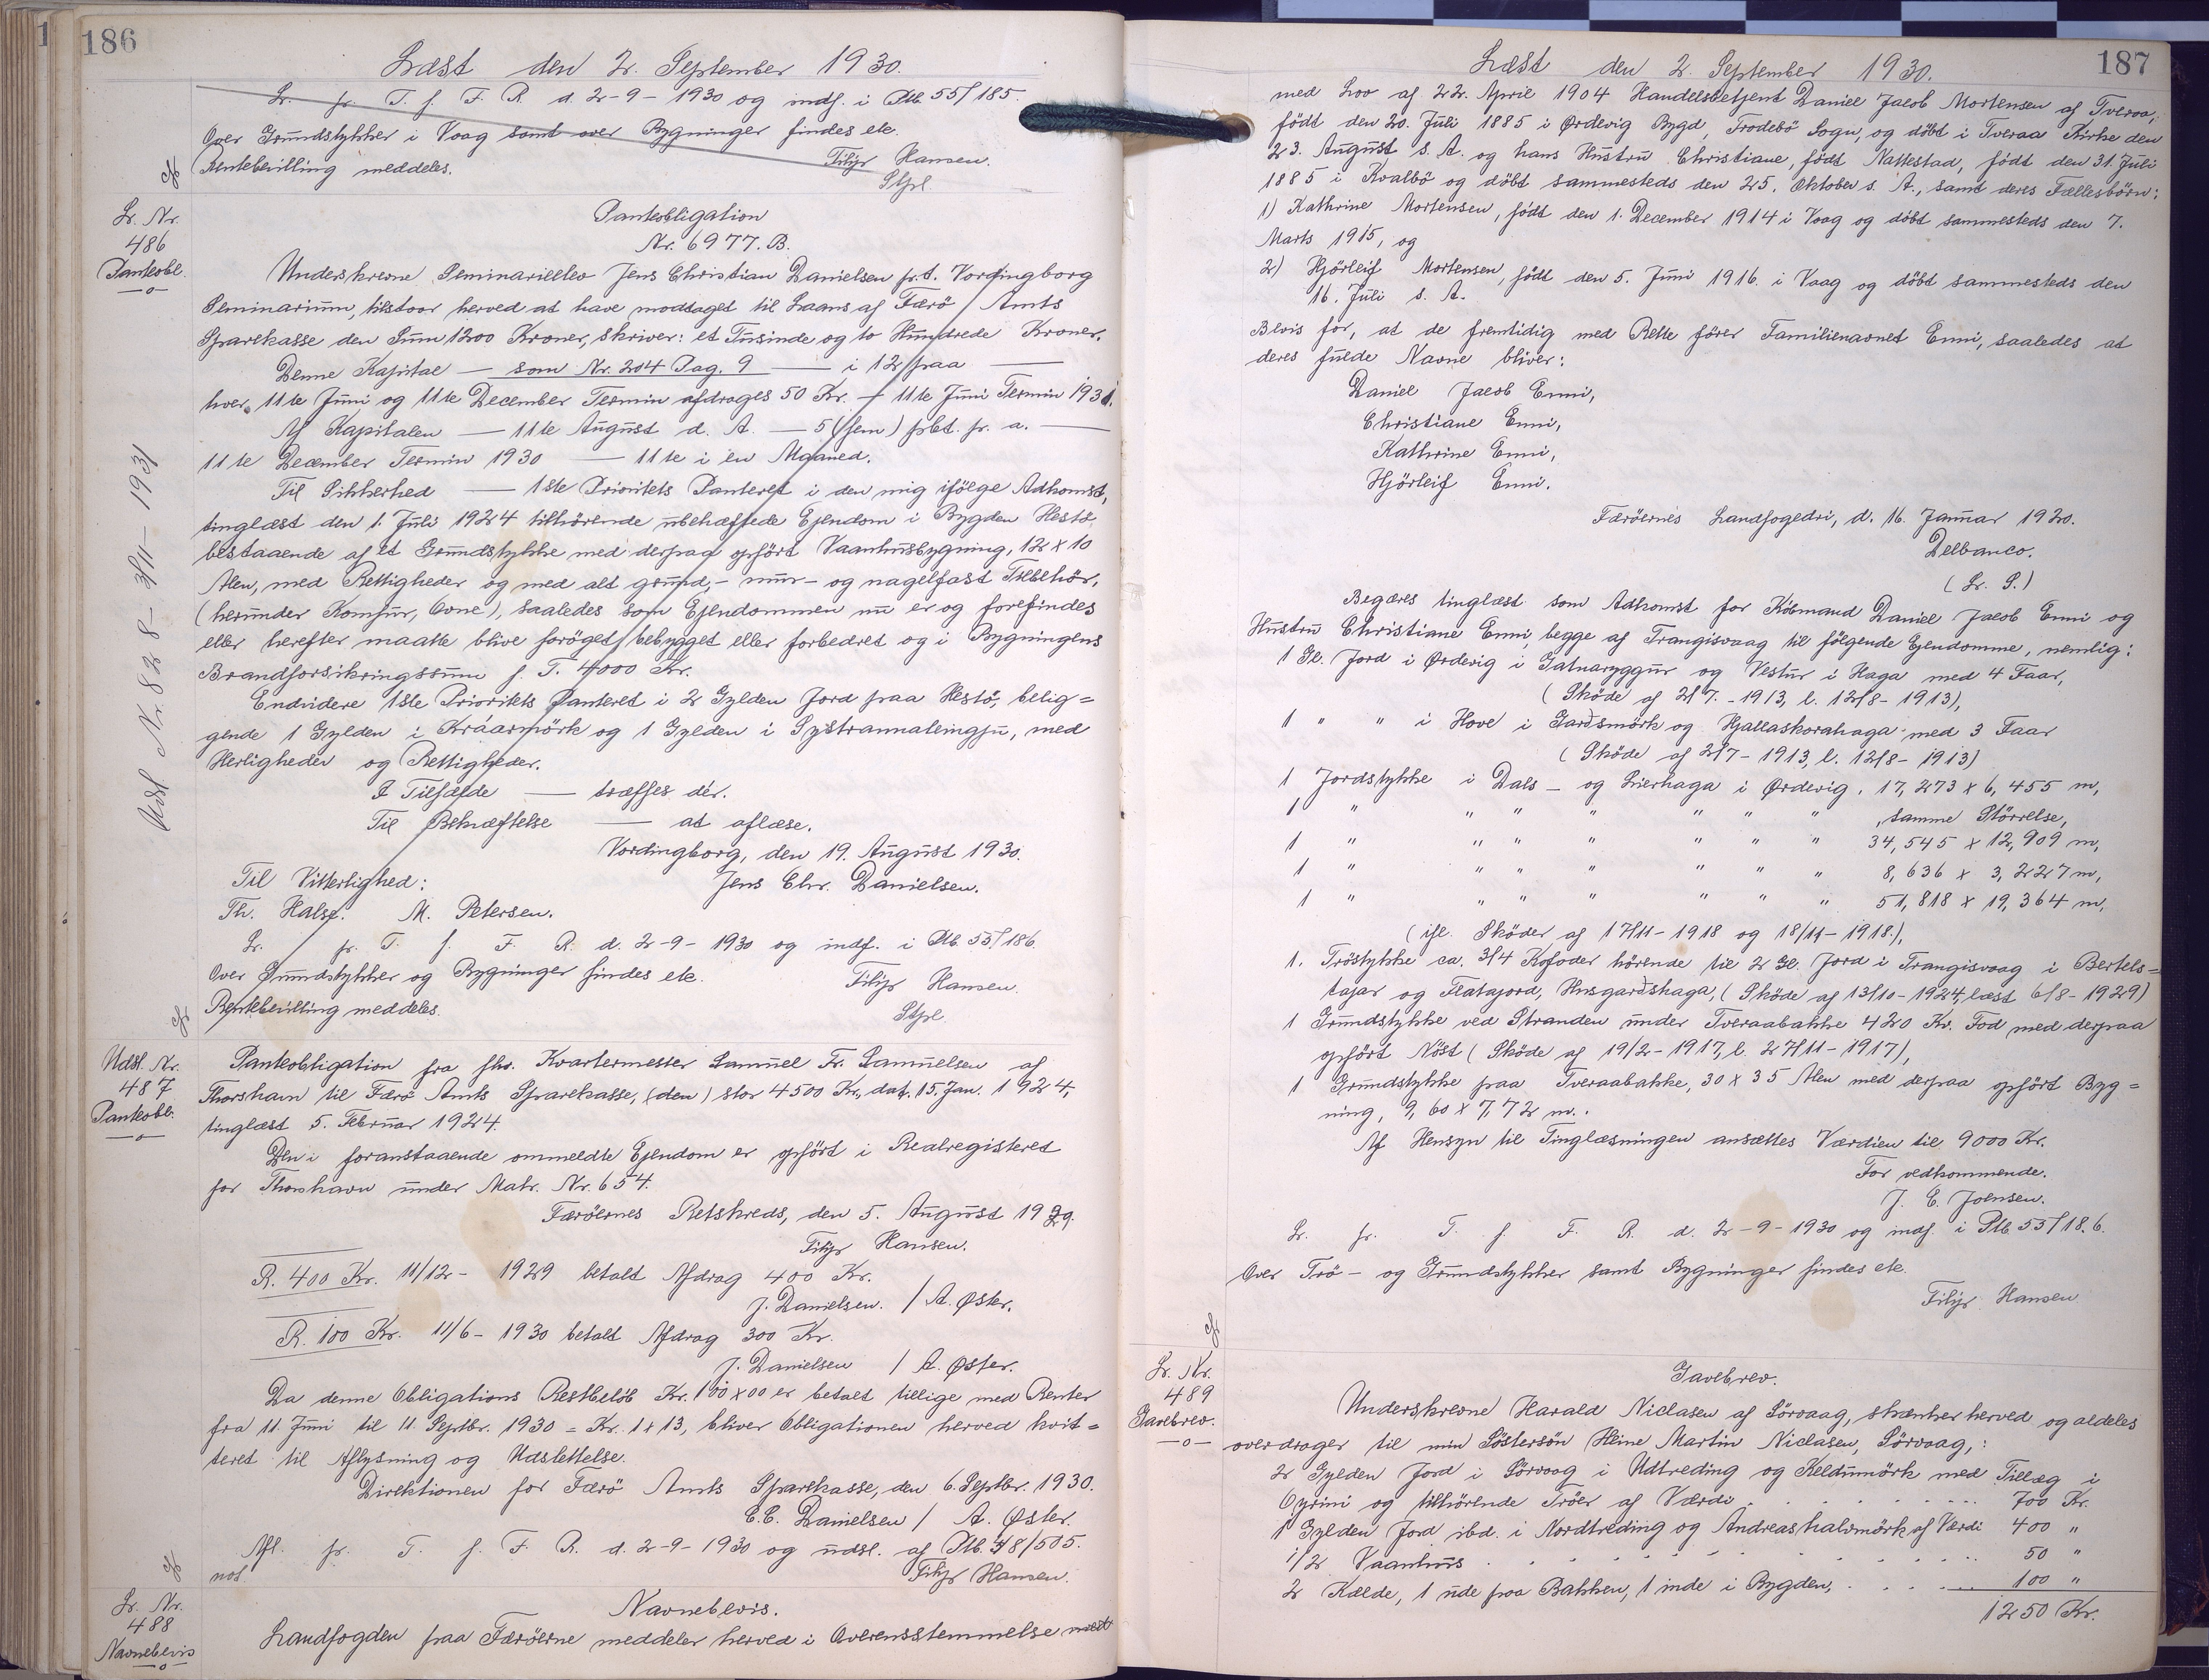 186
Læst den 2. September 1930.
L. pr. T. f. F. R. d. 2-9-1930 og indf. i Ptb. 55/185.
Over Grundstykker i Vaag samt over Bygninger findes etc.
Rentebevilling meddeles. Filip Hansen.
Stpl.
L. Nr.
486
Panteobl.
Panteobligation
Nr. 6977. B.
Underskrevne Seminarieelev Jens Christian Danielsen p.t. Vordingborg
Seminarium, tilstaar herved at have modtaget til Laans af Færö Amts
Sparekasse den Sum 1200 Kroner, skriver: et Tusinde og to Hundrede Kroner.
Denne Kapital — som Nr. 204 Pag. 9 — i 12 paa —
hver 11te Juni og 11te December Termin afdrages 50 Kr. — 11te Juni Termin 1931.
Af Kapitalen — 11te August d. A. — 5 (fem) pct. pr. a. —
11te December Termin 1930 — 11te i en Maaned.
Til Sikkerhed — 1ste Prioritets Panteret i den mig ifölge Adkomst,
tinglæst den 1. Juli 1924 tilhörende ubehæftede Ejendom i Bygden Hestö,
bestaaende af et Grundstykke med derpaa opfört Vaanhusbygning, 12 x 10
Alen, med Rettigheder og med alt grund,- mur- og nagelfast Tilbehör,
(herunder Komfur, Ovne), saaledes som Ejendommen nu er og forefindes
eller herefter maatte blive foröget, bebygget eller forbedret og i Bygningens
Brandforsikringssum p. T. 4000 Kr.
Endvidere 1ste Prioritets Panteret i 2 Gylden Jord paa Hestö, belig=
gende 1 Gylden i Kráarmörk og 1 Gylden i Systrannaleingju, med
Herligheder og Rettigheder.
I Tilfælde — træffes dér.
Til Bekræftelse — at aflæse.
Vordingborg, den 19. August 1930.
Til Vitterlighed: Jens Chr. Danielsen.
Th. Halse. M. Petersen.
L. pr. T. f. F. R. d. 2-9-1930 og indf. i Ptb. 55/186.
Over Grundstykker og Bygninger findes etc. Filip Hansen.
Rentebevilling meddeles. Stpl.
Udsl. Nr. 828 - 3/11 - 1931
Udsl. Nr.
487
Panteobl.
Panteobligation fra fhv. Kvartermester Samuel Fr. Samuelsen af
Thorshavn til Færö Amts Sparekasse, (den) stor 4500 Kr., dat. 15. Jan. 1924,
tinglæst 5. Februar 1924.
Den i foranstaaende ommeldte Ejendom er opfört i Realregisteret
for Thorshavn under Matr. Nr. 654.
Færöernes Retskreds, den 5. August 1929.
Filip Hansen.
R. 400 Kr. 11/12 - 1929 betalt Afdrag 400 Kr.
J. Danielsen. / A. Øster.
R. 100 Kr. 11/6 - 1930 betalt Afdrag 300 Kr.
J. Danielsen / A. Øster.
Da denne Obligations Restbelöb Kr. 100x00 er betalt tillige med Renter
fra 11. Juni til 11. Septbr. 1930 = Kr. 1x13, bliver Obligationen herved kvit=
teret til Aflysning og Udslettelse.
Direktionen for Færö Amts Sparekasse, den 6. Septbr. 1930.
C.C. Danielsen / A. Øster.
Afl. pr. T. f. F. R. d. 2-9-1930 og udsl. af Ptb. 48/505.
not. Filip Hansen.
L. Nr.
488
Navnebevis
Navnebevis.
Landfogden paa Færöerne meddeler herved i Overensstemmelse med
187
Læst den 2. September 1930.
med Lov af 22. April 1904 Handelsbetjent Daniel Jacob Mortensen af Tveraa,
født den 20. Juli 1885 i Ørdevig Bygd, Frodebö Sogn, og döbt i Tveraa Kirke den
23. August s. A. og hans Hustru Christiane, födt Nattestad, födt den 31. Juli
1885 i Kvalbö og döbt sammesteds den 25. Oktober s. A., samt deres Fællesbörn:
1) Kathrine Mortensen, födt den 1. December 1914 i Vaag og döbt sammesteds den 7.
Marts 1915, og
2) Hjörleif Mortensen, födt den 5. Juni 1916 i Vaag og döbt sammesteds den
16. Juli s. A.
Bevis for, at de fremtidig med Rette förer Familienavnet Enni, saaledes at
deres fulde Navne bliver:
Daniel Jacob Enni,
Christiane Enni,
Kathrine Enni,
Hjörleif Enni.
Færöernes Landfogedri, d. 16. Januar 1920.
Delbanco.
(L. S.)
Begæres tinglæst som Adkomst for Köbmand Daniel Jacob Enni og
Hustru Christiane Enni, begge af Trangisvaag til fölgende Ejendomme, nemlig:
1 Gl. Jord i Ørdevig i Gatnaryggur og Vestur i Haga med 4 Faar,
(Sköde af 2/7 - 1913, l. 12/8 - 1913),
1 " " i Hove i Gardsmörk og Hjallaskorahaga med 3 Faar
(Sköde af 2/7 - 1913, l. 12/8 - 1913)
1 Jordstykke i Dals - og Lierhaga i Ørdevig, 17,273 x 6,455 m,
1 " " " " " " " , samme Störrelse,
1 " " " " " " " 34,545 x 12,909 m,
1 " " " " " " " 8,636 x 3,227 m,
1 " " " " " " " 51,818 x 19,364 m,
(ifl. Sköder af 17/11 - 1918 og 18/11 - 1918.),
1. Tröstykke ca. 3/4 Kofoder hörende til 2 Gl. Jord i Trangisvaag i Bertels=
tajar og Flatajord, Husgardshaga, (Sköde af 13/10 - 1924, læst 6/8 - 1929)
1 Grundstykke ved Stranden under Tveraabakke 420 Kv. Fod med derpaa
opfört Nöst (Sköde af 19/2 - 1917, l. 27/11 - 1917),
1 Grundstykke paa Tveraabakke, 30 x 35 Alen med derpaa opfört Byg=
ning, 9,60 x 7,72 m.
Af Hensyn til Tinglæsningen ansættes Værdien til 9000 Kr.
For vedkommende.
J. E. Joensen.
L. pr. T. f. F. R. d. 2-9-1930 og indf. i Ptb. 55/186.
Over Trö - og Grundstykker samt Bygninger findes etc.
Filip Hansen
L. Nr.
489
Gavebrev.
Gavebrev.
Underskrevne Harald Niclasen af Sörvaag, skænker herved og aldeles
overdrager til min Söstersön Heine Martin Niclasen, Sörvaag, :
2 Gylden Jord i Sörvaag i Udtreding og Keldumörk med Tillæg i
Oyrini og tilhörende Tröer af Værdi . . . . . 700 Kr.
1 Gylden Jord ibd. i Nordtreding og Andreashalvmörk af Værdi 400 "
1/2 Vaanhus . . . . . . . . 50 "
2 Kælde, 1 ude paa Bakken, 1 inde i Bygden, . . . . 100 "
1250 Kr.